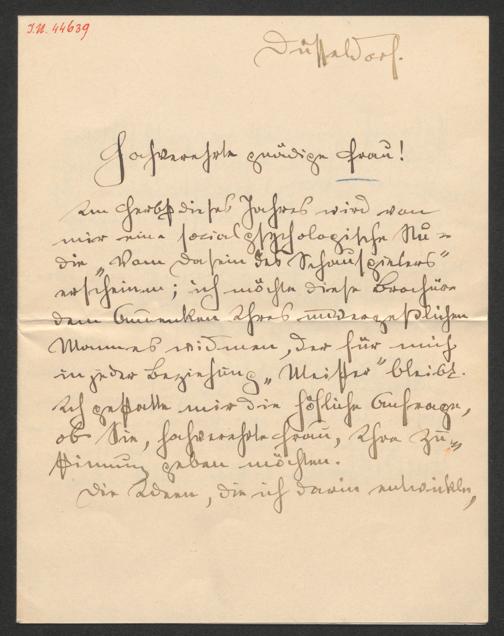 I.N. 44639
Düsseldorf.
Hochverehrte gnädige Frau!
Im Herbst dieses Jahres wird von
mir eine socialpsychologische Stu-
die „Vom Dasein des Schauspielers“
erscheinen; ich möchte diese Brochüre
dem Andenken Ihres unvergeßlichen
Mannes widmen, der für mich
in jeder Beziehung „Meister“ bleibt.
Ich gestatte mir die höfliche Anfrage,
ob Sie, hochverehrte Frau, Ihre Zu-
stimmung geben möchten.
Die Ideen, die ich darin entwickle,